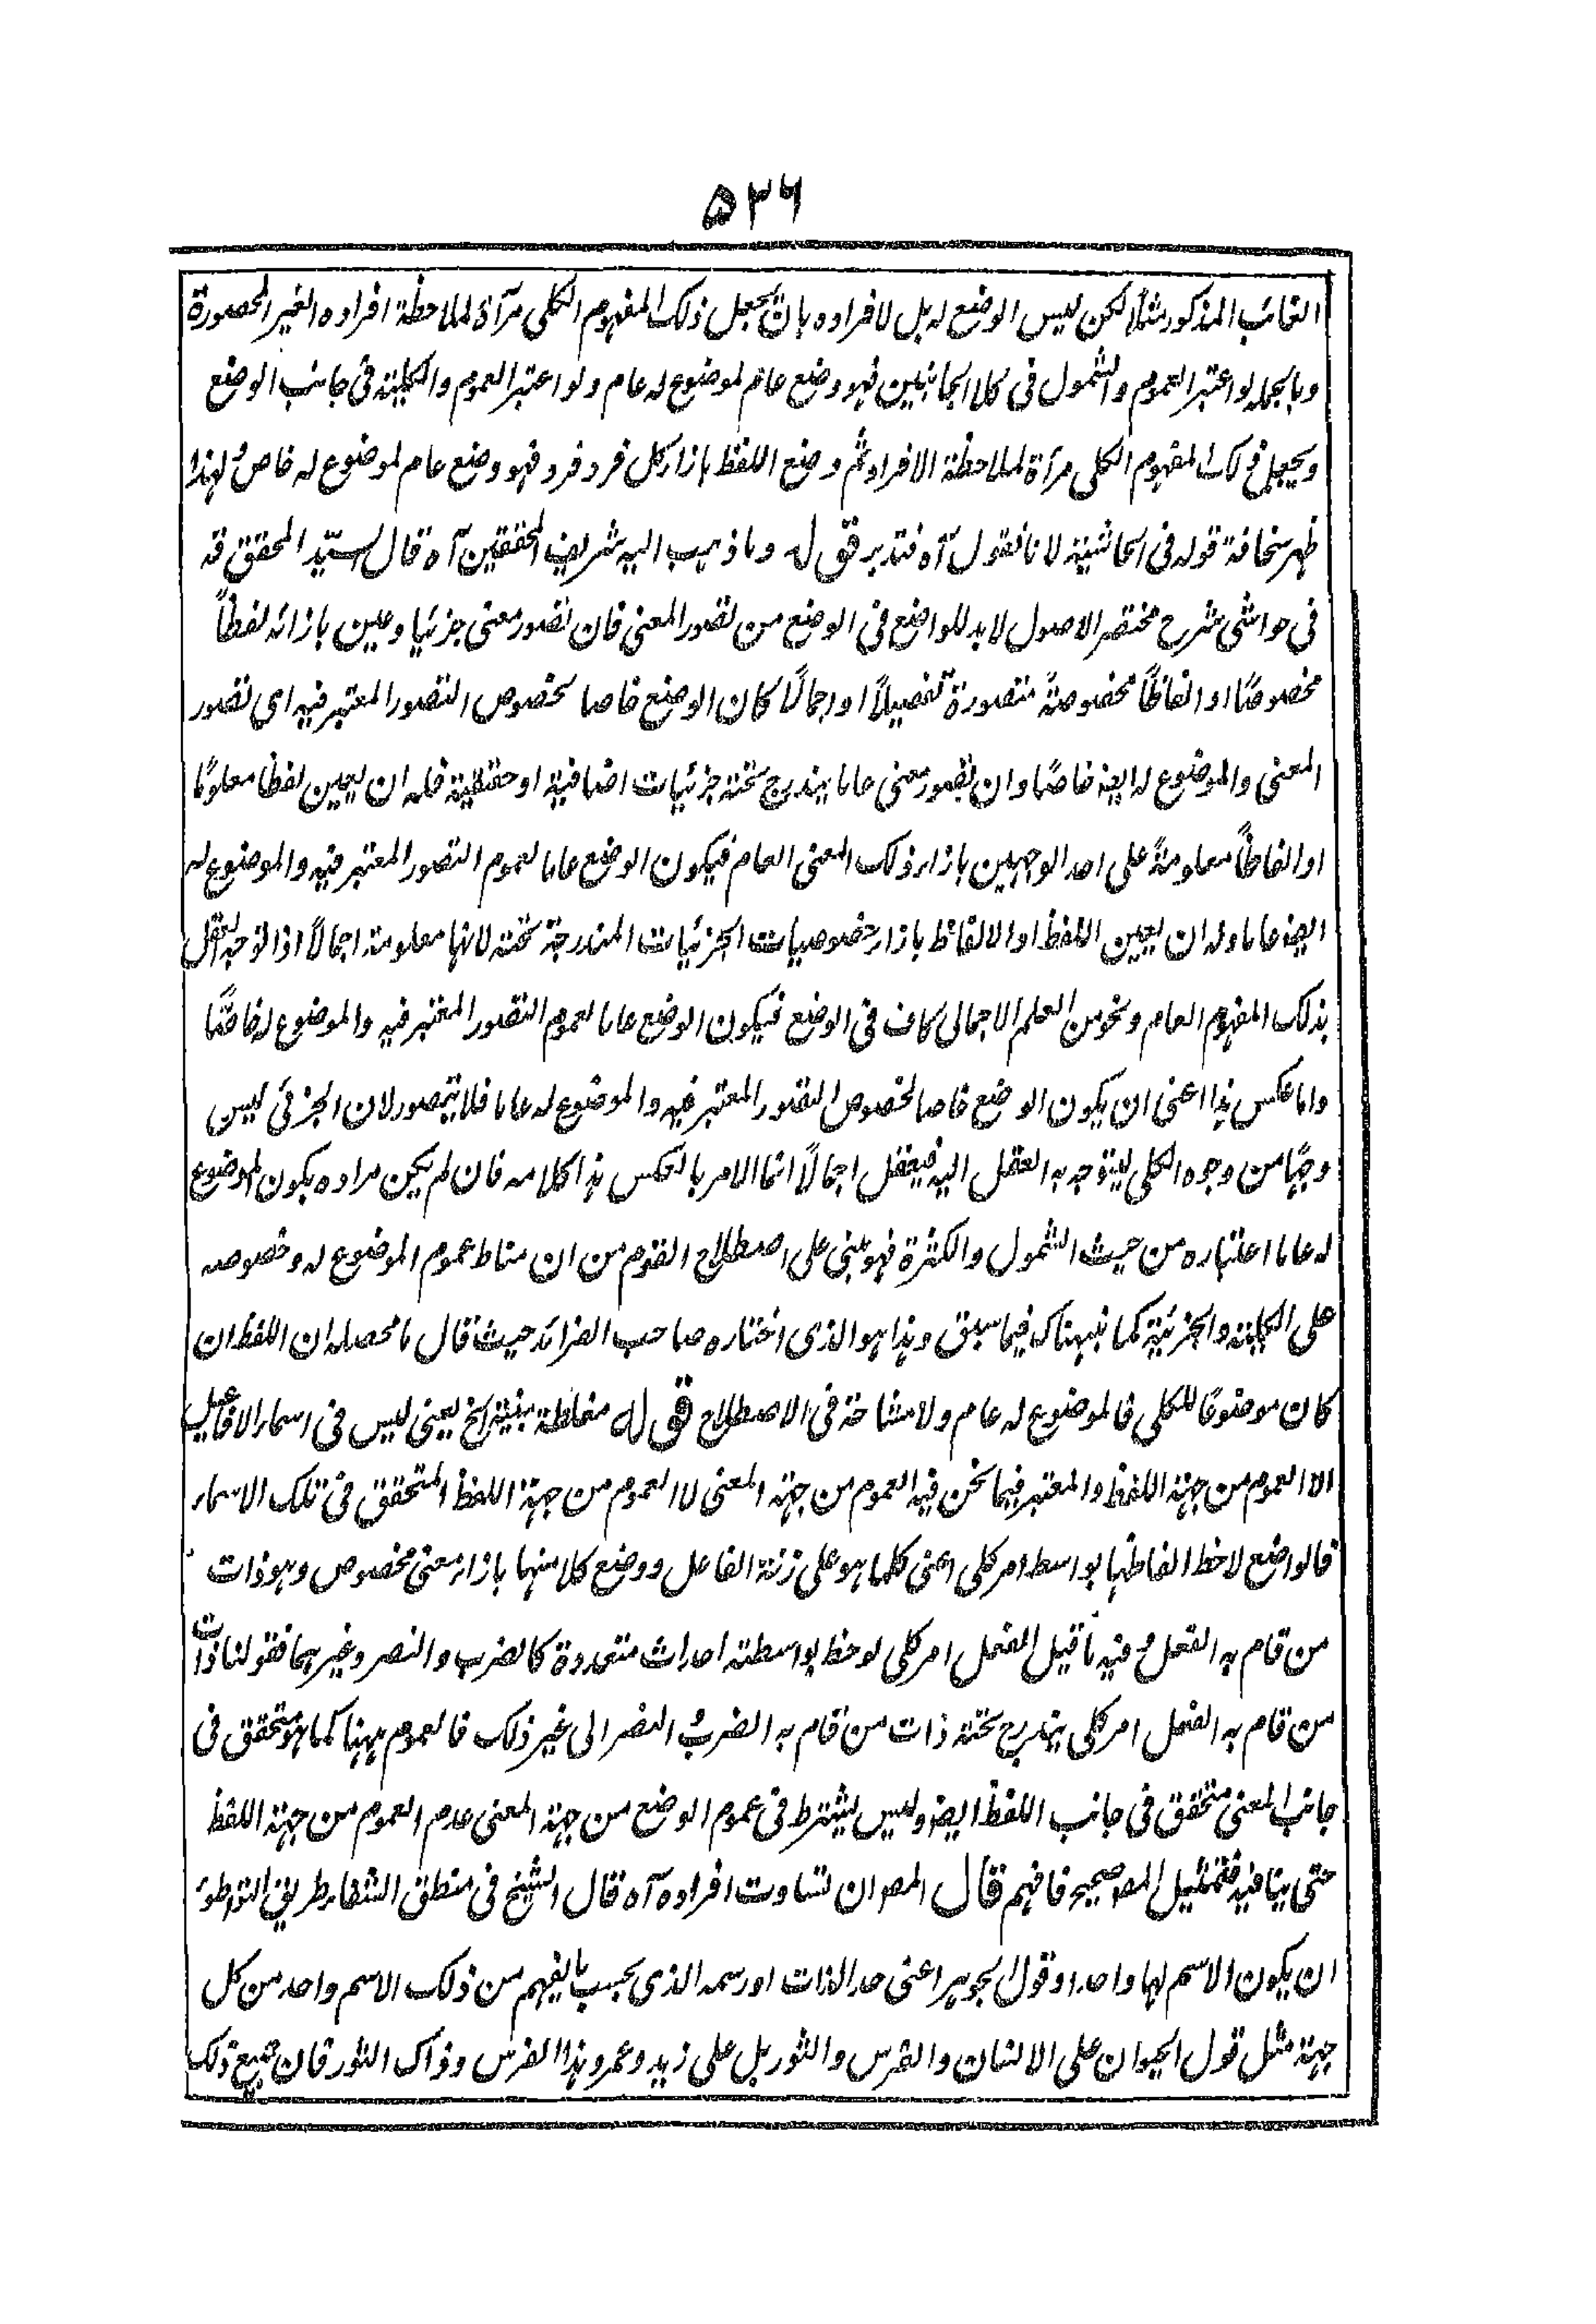 ۵۳۶
الغائب المذکور مثلاً لکن لیس الوضع له بل لافراده بان یجعل ذلک المفهوم الکلی مرآة لملاحظة افراده الغیر المحصورة
وبالجمله لو اعتبر العموم والشمول فی کلا الجانبین فهو وضع عام لموضوع له عام ولو اعتبر العموم والکلیة فی جانب الوضع
ویجعل ذلک المفهوم الکلی مرآة لملاحظة الافراد ثم وضع اللفظ بازار کل فرد فرد فهو وضع عام لموضوع له خاص و لهذا
ظهر سخافة قوله فی الحاشیة لانا نقول آه فتدبر قوله وما ذهب الیه شریف المحققین آه قال السیّد المحقق قد
فی حواشی شرح مختصر الاصول لابد للواضع فی الوضع من تصور المعنی فان تصور معنی جزئیا وعین بازائه لفظاً
مخصوصًا او الفاظاً مخصوصةً متصورة تفصیلاً او اجمالاً کان الوضع خاصا لخصوص التصور المعتبر فیه ای تصور
المعنی والموضوع له ایضه خاصًا وان تصور معنی عاما یندرج تحته جزئیات اضافیة او حقیقیة فله ان یعین لفظا معلومًا
او الفاظاً معلومةً علی احد الوجهین بازار ذلک المعنی العام فیکون الوضع عاما لعموم التصور المعتبر فیه والموضوع له
ایضه عاما وله ان یعین اللفظ او الالفاظ بازار خصوصیات الجزئیات المندرجة تحته لانها معلومة اجمالاً اذا توجه العقل
بذلک المفهوم العام ونحو من العلم الاجمالی کاف فی الوضع فیکون الوضع عاما لعموم التصور المعتبر فیه والموضوع له خاصًّا
واما عکس هذا اعنی ان یکون الوضع خاصا لخصوص التصور المعتبر فیه والموضوع له عاما فلا یتصور لان الجزئی لیس
وجهًا من وجوه الکلی لیتوجه به العقل الیه فیعقل اجمالاً انما الامر بالعکس هذا کلامه فان لم یکن مراده بکون الموضوع
له عاما اعتباره من حیث الشمول والکثرة فهو مبنی علی اصطلاح القوم من ان مناط عموم الموضوع له وخصوصه
علی الکلیة والجزئیة کما نبهناک فیما سبق وهذا هو الذی اختاره صاحب الفرائد حیث قال ما محصله ان اللفظ ان
کان موضوعًا للکلی فالموضوع له عام ولا مشاحة فی الاصطلاح قوله مغلطة بینة الخ یعنی لیس فی اسمار الافاعیل
الا العموم من جهة اللفظ والمعتبر فیما نحن فیه العموم من جهة المعنی لا العموم من جهة اللفظ المتحقق فی تلک الاسمار
فالواضع لاحظ الفاظها بواسط امر کلی اعنی کلما هو علی زنة الفاعل ووضع کلا منها بازار معنی مخصوص وهو ذات
من قام به الفعل و فیه ما قیل الفعل امر کلی لوحظ بواسطته احداث متعددة کالضرب والنصر وغیرهما فقولنا ذات
من قام به الفعل امر کلی یندرج تحته ذات من قام به الضرب و النصر الی غیر ذلک فالعموم ههنا کما هو متحقق فی
جانب المعنی متحقق فی جانب اللفظ ایضه ولیس یشترط فی عموم الوضع من جهة المعنی عدم العموم من جهة اللفظ
حتی ینافیه فتمثیل المصـ صحیح فافهم قال المصـ وان تساوت افراده آه قال الشیخ فی منطق الشفار طریق التواطوء
ان یکون الاسم لها واحدا وقول الجوهر اعنی حد الذات او رسمه الذی بحسب ما یفهم من ذلک الاسم واحد من کل
جهة مثل قول الحیوان علی الانسان والفرس والثور بل علی زید وعمرو وهذا الفرس وذاک الثور فان جمیع ذلک